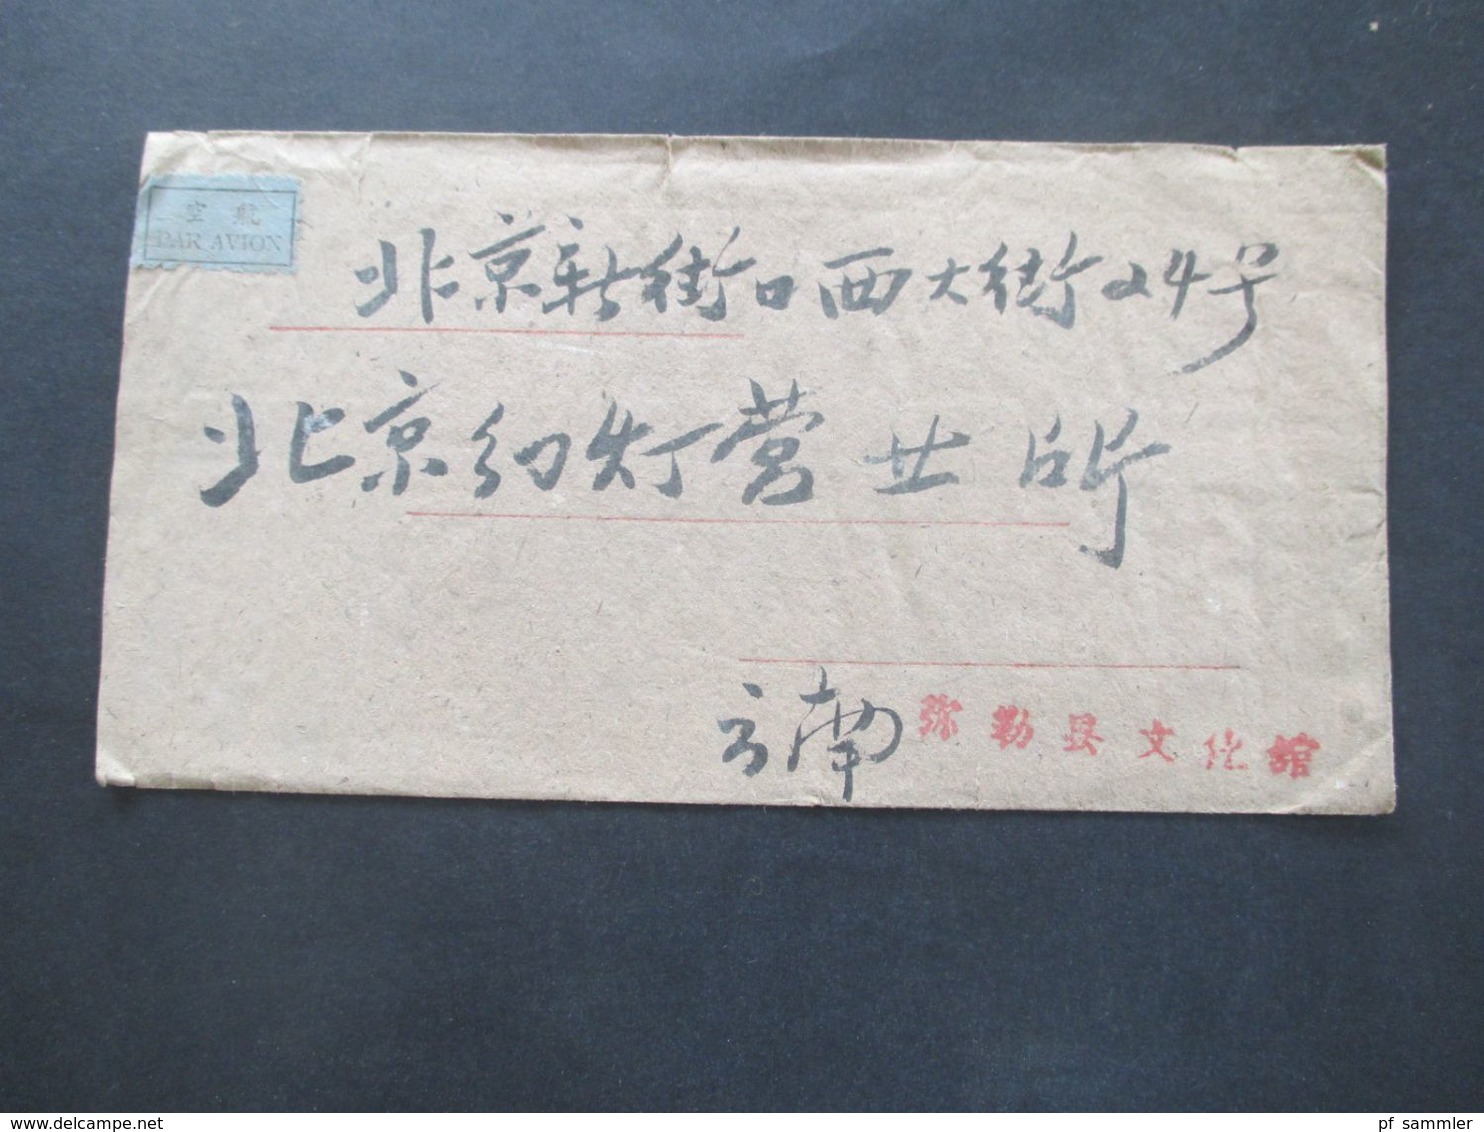 空 航
PAR AVION
北京新街口西大街24号
北京幻灯营业所
云南 弥勒县文化館
pf sammler